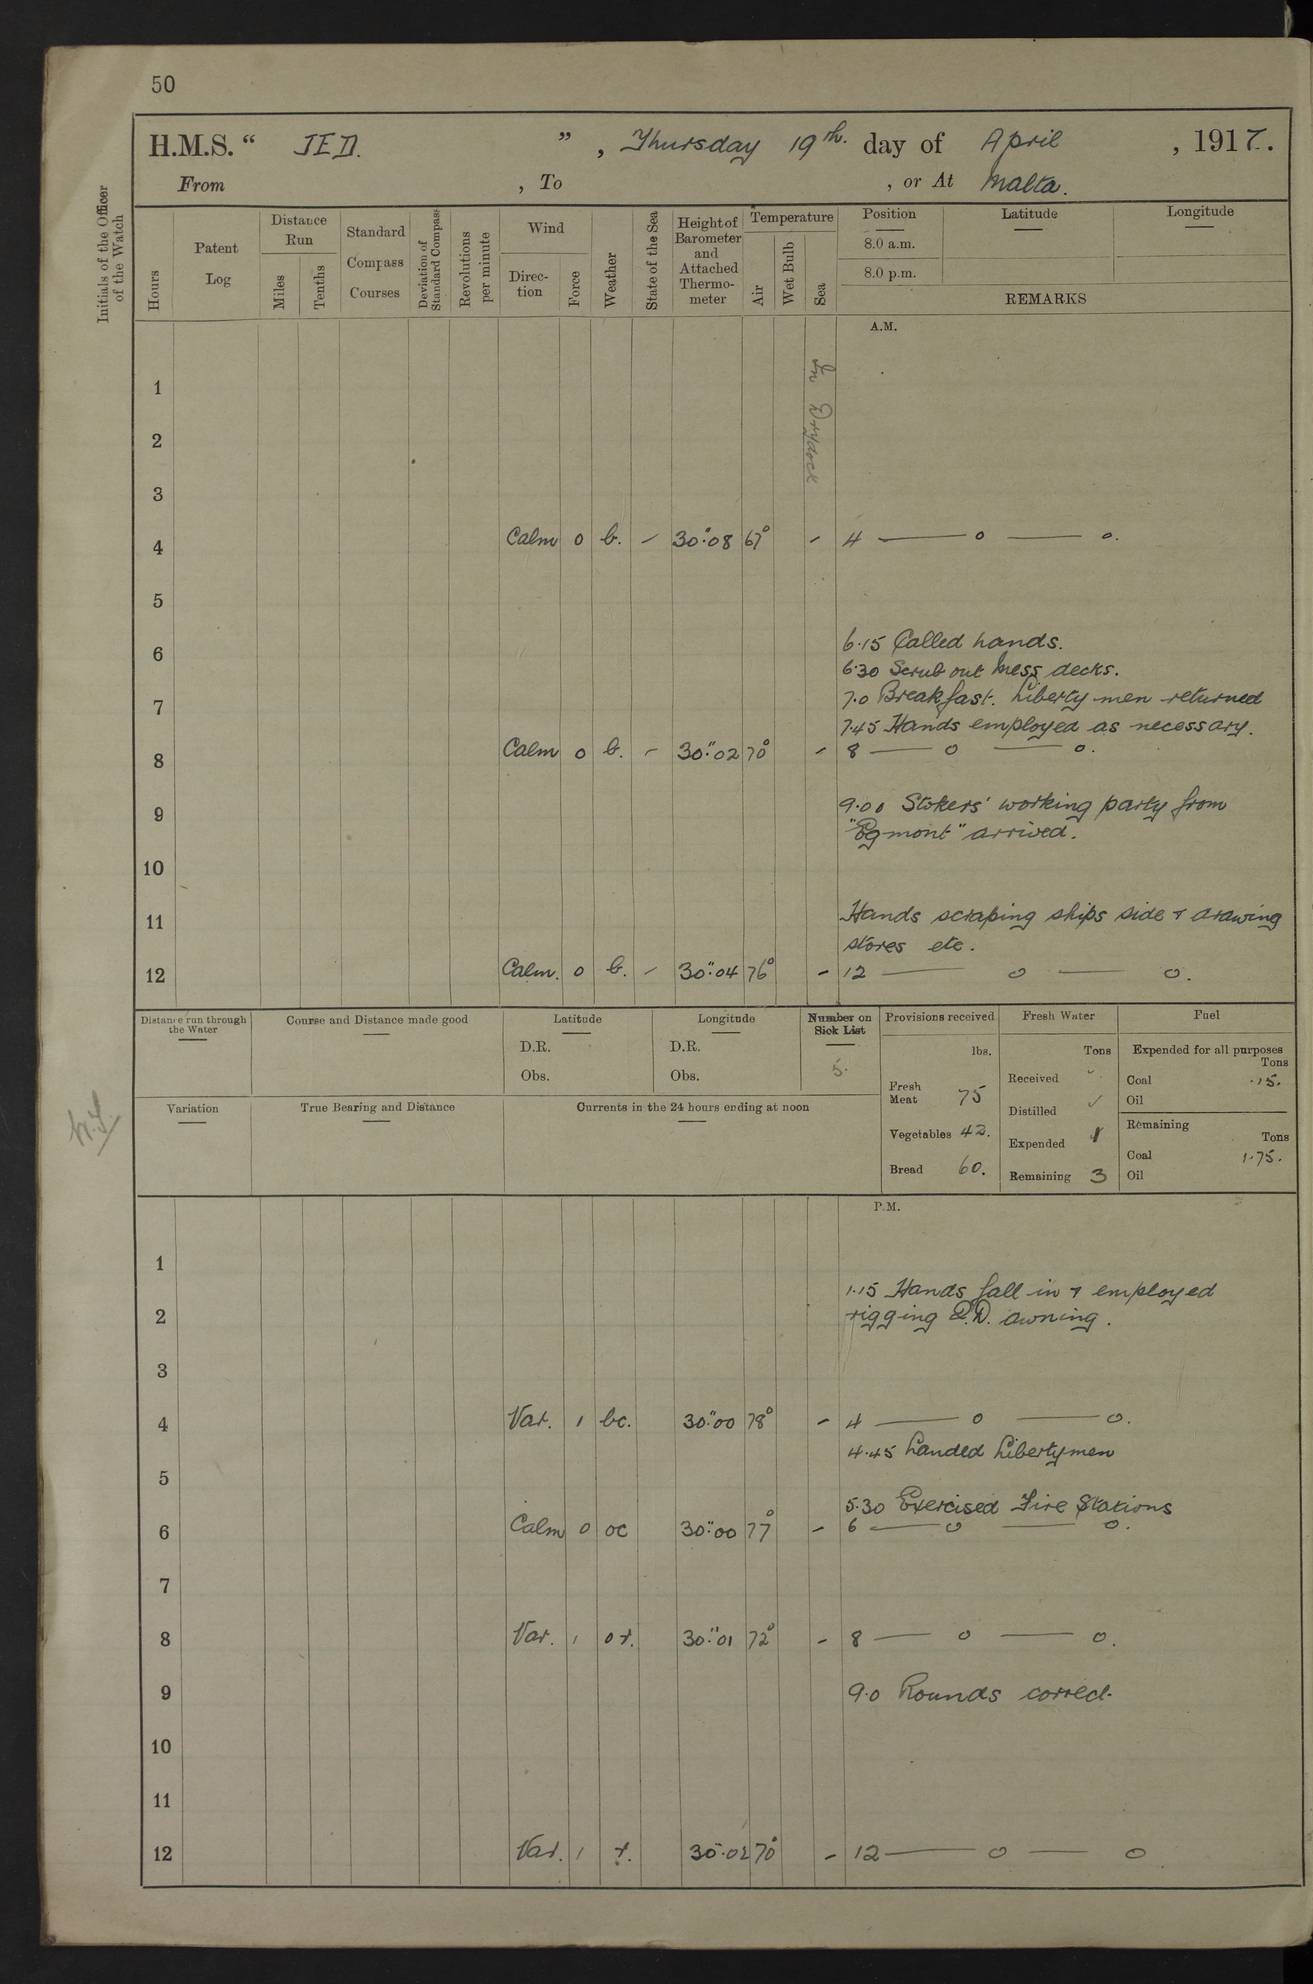 50
H.M.S. “ JED. ” , Thursday 19th. day of April , 1917.
From , To , or At Malta.
Initials of the Officer of the Watch
Hours
Patent Log
Distance Run
Miles
Tenths
Standard Compass Courses
Deviation of Standard Compass
Revolutions per minute
Wind
Direc-tion
Force
Weather
State of the Sea
Height of Barometer and Attached Thermo-meter
Temperature
Air
Wet Bulb
Sea
Position
Latitude
Longitude
8.0 a.m.
8.0 p.m.
REMARKS
A.M.
In Drydock
1
2
3
4 Calm 0 b. – 30".08 67° – 4 — o — o.
5
6.15 Called hands.
6
6.30 Scrub out mess decks.
7.0 Breakfast. Liberty men returned
7
7.45 Hands employed as necessary.
8 Calm 0 b. – 30".02 70° – 8 — o — o.
9.00 Stokers' working party from
9
"Egmont" arrived.
10
11 Hands scraping ships side & drawing
stores etc.
12 Calm. 0 b. – 30".04 76° – 12 — o — o.
Distance run through the Water
Course and Distance made good
Latitude
D.R.
Obs.
Longitude
D.R.
Obs.
Number on Sick List
5.
Provisions received
lbs.
Fresh Meat 75
Vegetables 42.
Bread 60.
Fresh Water
Tons
Received
Distilled
Expended 1
Remaining 3
Fuel
Expended for all purposes
Tons
Coal .15.
Oil
Remaining
Tons
Coal 1.75.
Oil
Variation
True Bearing and Distance
Currents in the 24 hours ending at noon
P.M.
1
1.15 Hands fall in & employed
2 rigging Q.D. awning.
3
4 Var. 1 bc. 30".00 78° – 4 — o — o.
4.45 Landed Libertymen
5
5.30 Exercised Fire Stations
6 Calm 0 oc 30".00 77° – 6 — o — o.
7
8 Var. 1 or. 30".01 72° – 8 — o — o.
9 9.0 Rounds correct.
10
11
12 Var. 1 r. 30".02 70° – 12 — o — o